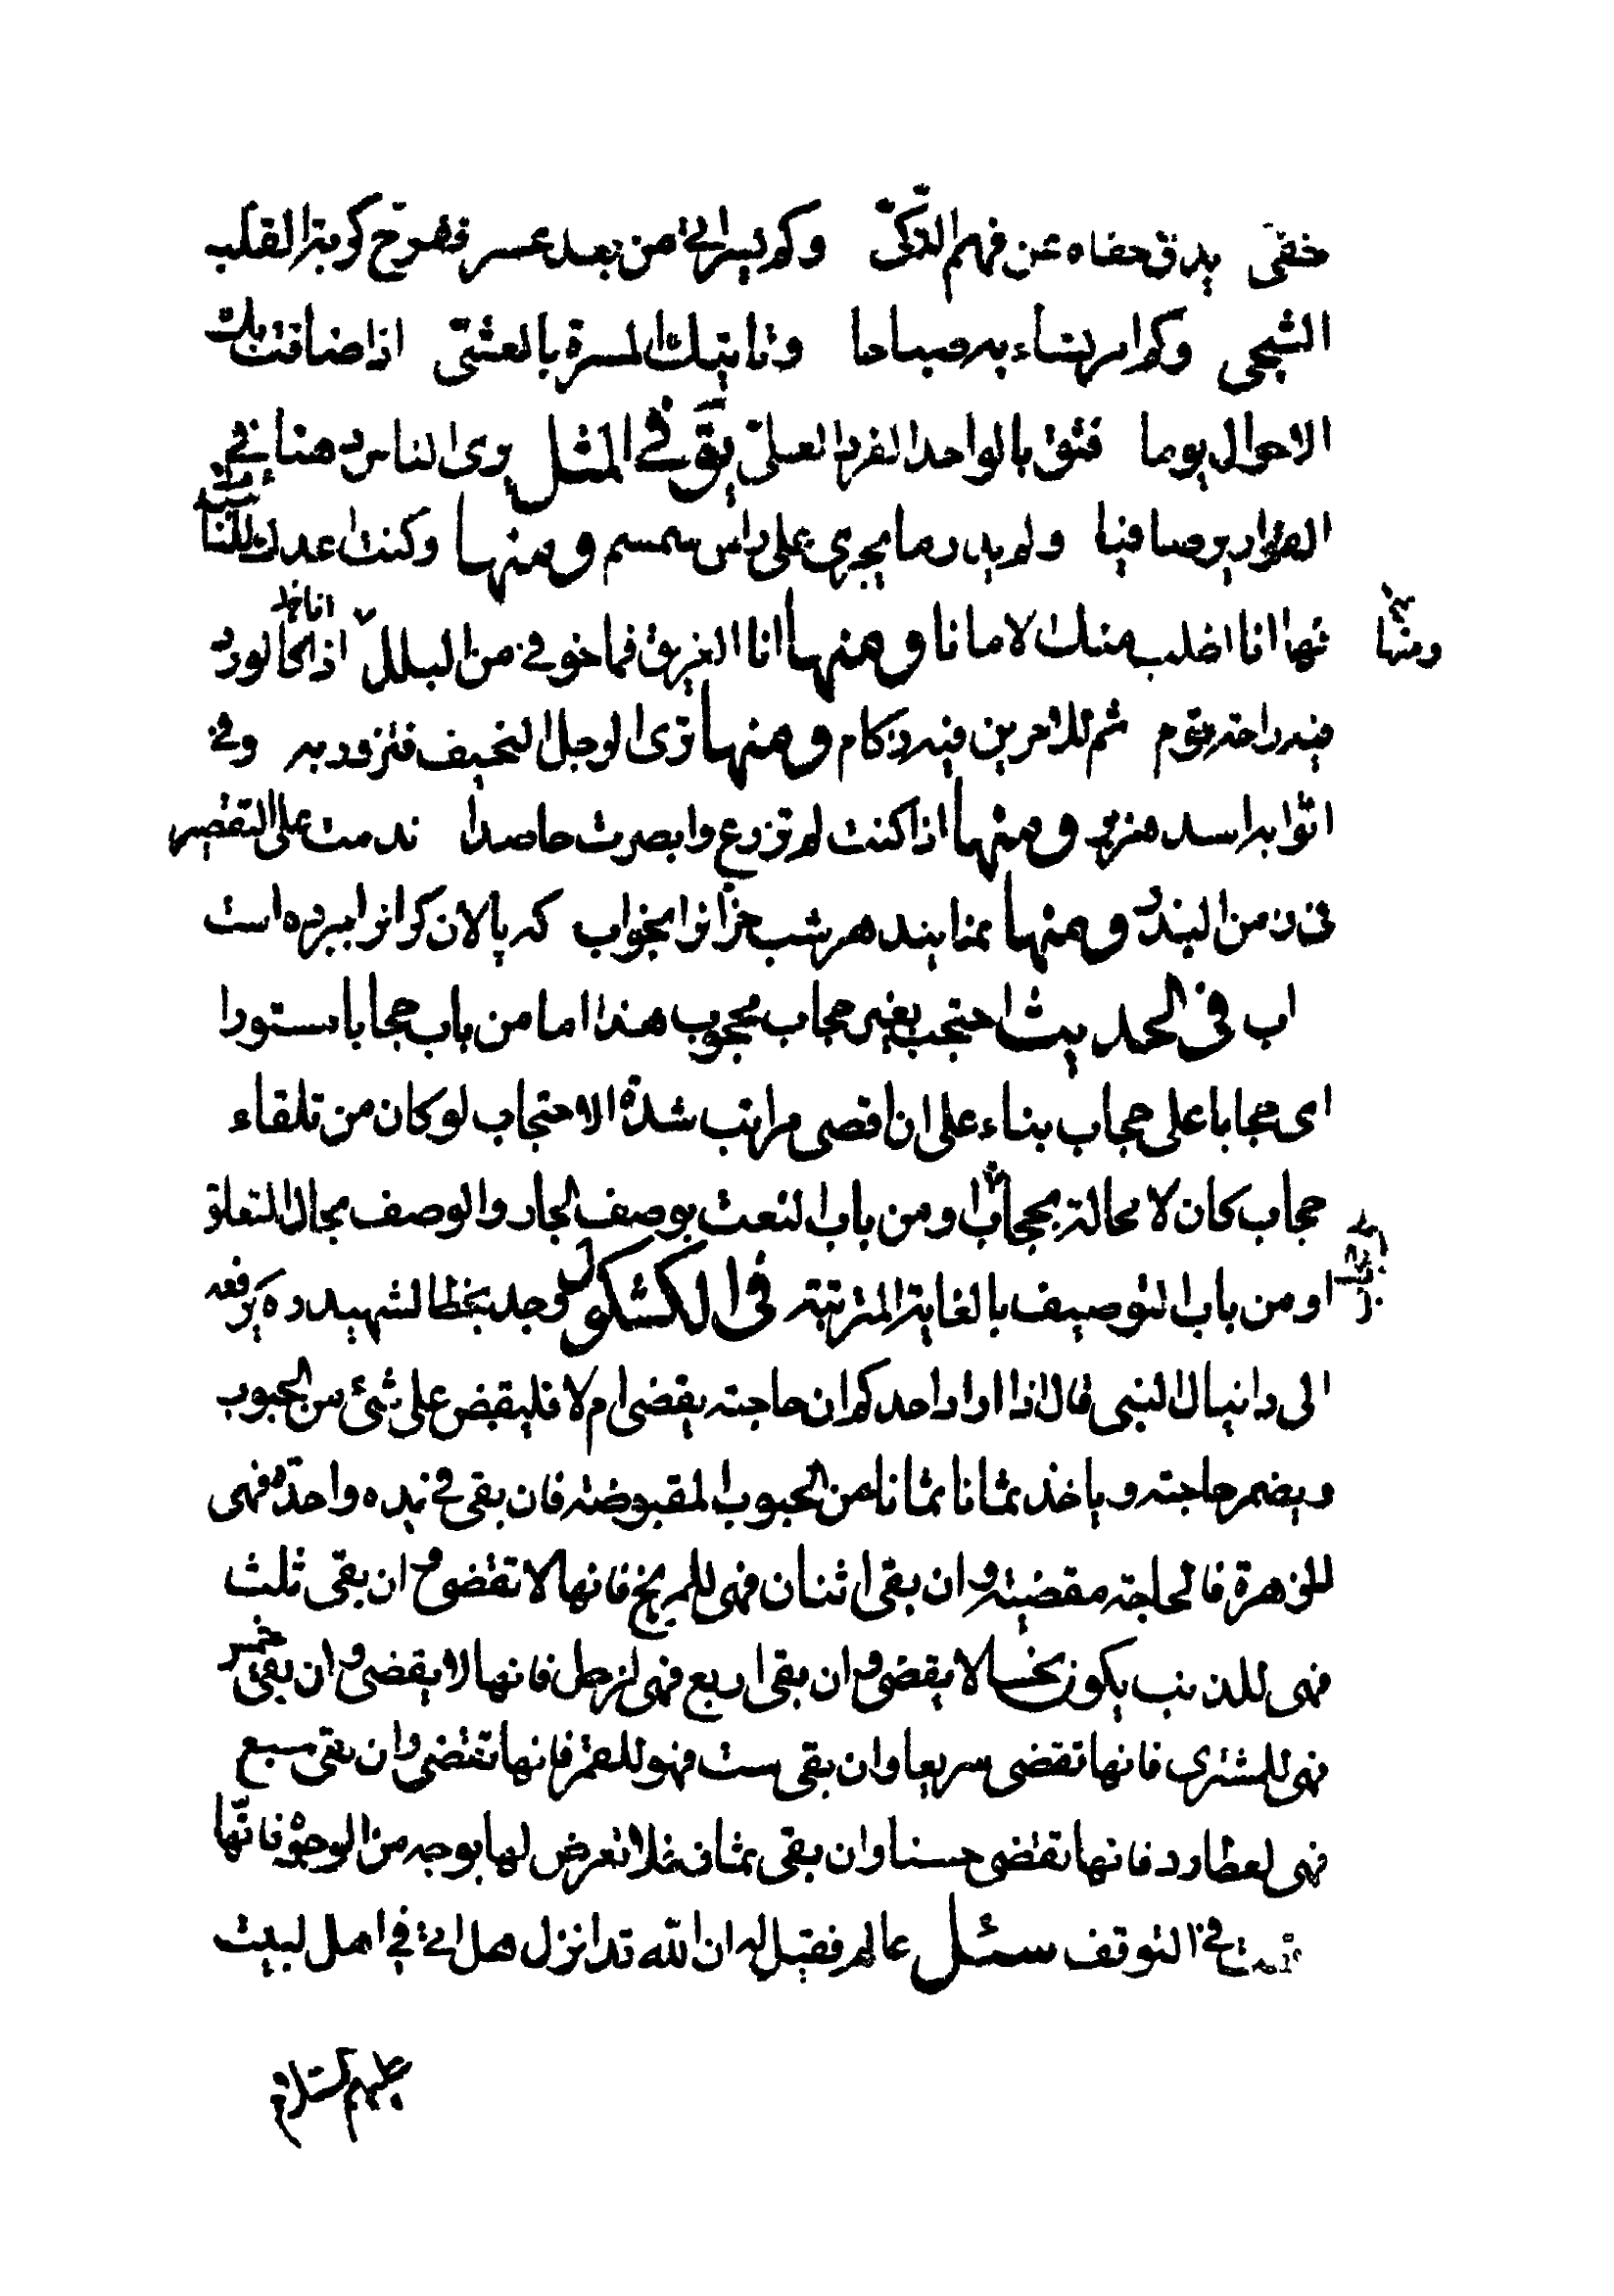 خفی یدق خفاه عن فهم الذکی وکم یسر اتی من بعد عسر ففرّح کربة القلب
الشجی وکم امر تساء به صباحا وتاتیک المسرة بالعشی اذا ضاقت بک
الاحوال یوما فثق بالواحد الفرد العلی یق فی المثل یری الناس دهنا فی
القواریر صافیا ولم یدر ما یجری علی راس سمسم ومنها وکنت اعدک للنا
ومنها
ئبات
ئها انا اطلب منک الامانا ومنها انا الغریق فما خوفی من البلل اذا الحا لورد
فیه راحة یقوم ثم للاخرین فیه زکام ومنها تری الرجل النحیف فتزودیه وفی
اثوابه اسد هزبر ومنها اذا کنت لم تزرع وابصرت حاصدا ندمت علی التقصیر
فی زمن البذر ومنها نمایند هر شب خرانرا بخواب که پالان کرانرا ببرده است
اب فی الحدیث احتجب بغیر حجاب محجوب هذا اما من باب حجابا مستورا
ای حجابا علی حجاب بناء علی ان اقصی مراتب شدة الاحتجاب لو کان من تلقاء
حجاب کان لا محالة بحجاب او من باب النعت بوصف الجار والوصف بحال المتعلق
او من باب التوصیف بالغایة المترتبة فی الکشکول وجد بخط الشهید ره یرفعه
الی دانیال النبی قال اذا اراد احدکم ان حاجته یقضی ام لا فلیقبض علی شئ من الحبوب
ویضمر حاجته ویاخذ ثمانا ثمانا من الحبوب المقبوضة فان بقی فی یده واحدة فهی
للزهرة فالحاجة مقضیة وان بقی اثنان فهی للمریخ فانها لا تقضی وان بقی ثلث
فهی للذنب یکون نحسا لا یقضی وان بقی اربع فهی لزحل فانها لا یقضی وان بقی خمس
فهی للمشتری فانها تقضی سریعا وان بقی ست فهو للقمر فانها تقضی وان بقی سبع
فهی لعطارد فانها تقضی حسنا وان بقی ثمان فلا تعرض لها بوجه من الوجوه فانّها
فی التوقف سئل عالم فقیل له ان الله قد انزل هل اتی فی اهل لبیت
علیهم السلام